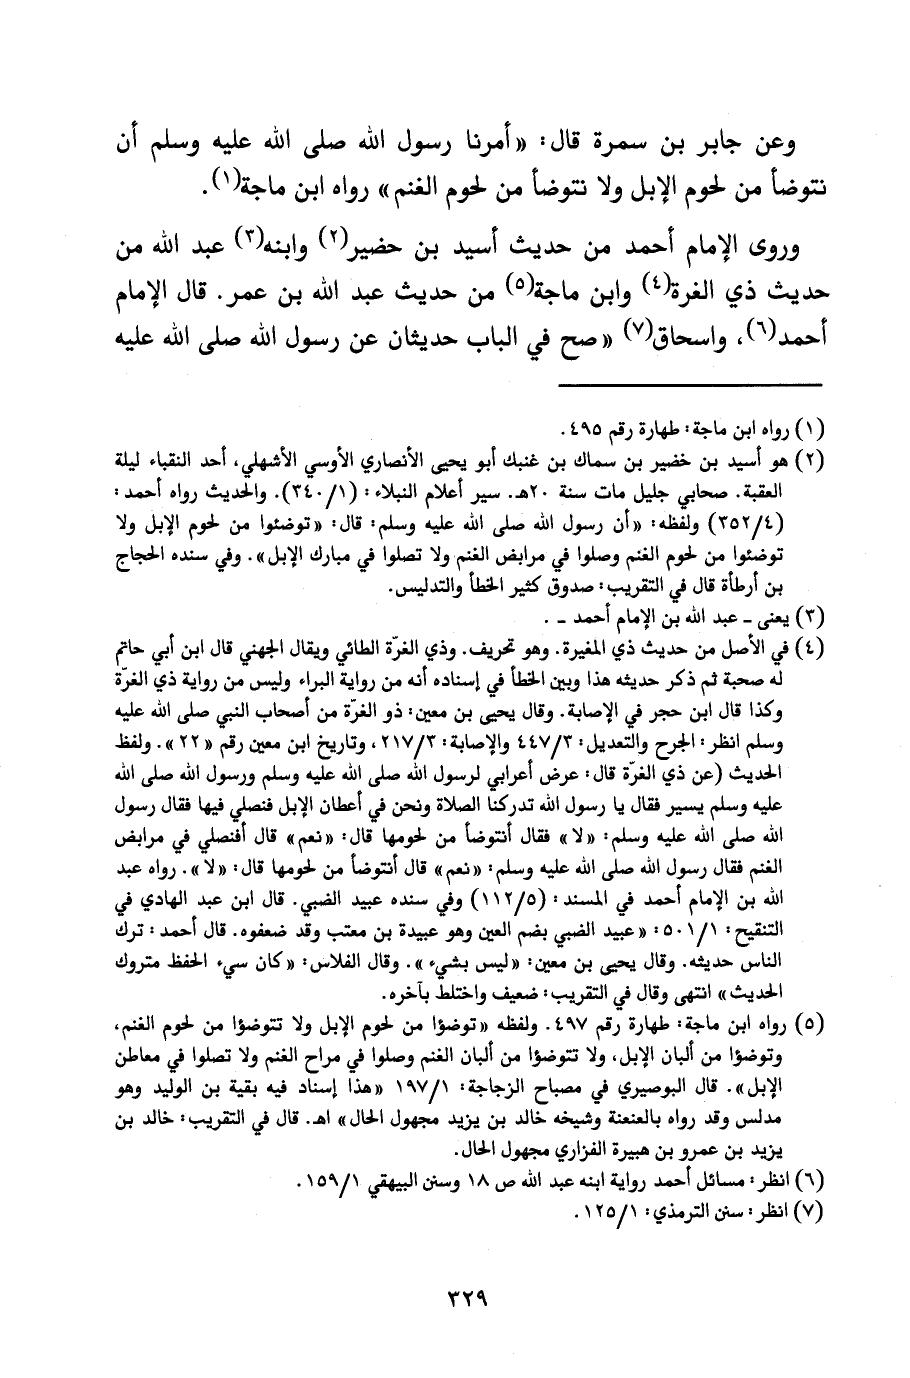 وعن جابر بن سمرة قال: «أمرنا رسول الله صلى الله عليه وسلم أن
نتوضأ من لحوم الإبل ولا نتوضأ من لحوم الغنم» رواه ابن ماجة(١).
وروى الإمام أحمد من حديث أسيد بن حضير(٢) وابنه(٣) عبد الله من
حديث ذي الغرة(٤) وابن ماجة(٥) من حديث عبد الله بن عمر. قال الإمام
أحمد(٦)، واسحاق(٧) «صح في الباب حديثان عن رسول الله صلى الله عليه
(١) رواه ابن ماجة: طهارة رقم ٤٩٥.
(٢) هو أسيد بن خضير بن سماك بن غنبك أبو يحيى الأنصاري الأوسي الأشهلي، أحد النقباء ليلة
العقبة. صحابي جليل مات سنة ٢٠هـ. سير أعلام النبلاء: (٣٤٠/١). والحديث رواه أحمد:
(٣٥٢/٤) ولفظه: «أن رسول الله صلى الله عليه وسلم: قال: «توضئوا من لحوم الإبل ولا
توضئوا من لحوم الغنم وصلوا في مرابض الغنم ولا تصلوا في مبارك الإبل». وفي سنده الحجاج
بن أرطأة قال في التقريب: صدوق كثير الخطأ والتدليس.
(٣) يعنى ـ عبد الله بن الإمام أحمد ـ .
(٤) في الأصل من حديث ذي المغيرة. وهو تحريف. وذي الغرّة الطائي ويقال الجهني قال ابن أبي حاتم
له صحبة ثم ذكر حديثه هذا وبين الخطأ في إسناده أنه من رواية البراء وليس من رواية ذي الغرّة
وكذا قال ابن حجر في الإصابة. وقال يحيى بن معين: ذو الغرّة من أصحاب النبي صلى الله عليه
وسلم انظر: الجرح والتعديل: ٤٤٧/٣ والإصابة: ٢١٧/٣، وتاريخ ابن معين رقم «٢٢». ولفظ
الحديث (عن ذي الغرّة قال: عرض أعرابي لرسول الله صلى الله عليه وسلم ورسول الله صلى الله
عليه وسلم يسير فقال يا رسول الله تدركنا الصلاة ونحن في أعطان الإبل فنصلي فيها فقال رسول
الله صلى الله عليه وسلم: «لا» فقال أنتوضأ من لحومها قال: «نعم» قال أفنصلي في مرابض
الغنم فقال رسول الله صلى الله عليه وسلم: «نعم» قال أنتوضأ من لحومها قال: «لا». رواه عبد
الله بن الإمام أحمد في المسند: (١١٢/٥) وفي سنده عبيد الضبي. قال ابن عبد الهادي في
التنقيح: ٥٠١/١: «عبيد الضبي بضم العين وهو عبيدة بن معتب وقد ضعفوه. قال أحمد: ترك
الناس حديثه. وقال يحيى بن معين: «ليس بشيء». وقال الفلاس: «كان سيء الحفظ متروك
الحديث» انتهى وقال في التقريب: ضعيف واختلط بآخره.
(٥) رواه ابن ماجة: طهارة رقم ٤٩٧. ولفظه «توضؤا من لحوم الإبل ولا تتوضؤا من لحوم الغنم،
وتوضؤا من ألبان الإبل، ولا تتوضؤا من ألبان الغنم وصلوا في مراح الغنم ولا تصلوا في معاطن
الإبل». قال البوصيري في مصباح الزجاجة: ١٩٧/١ «هذا إسناد فيه بقية بن الوليد وهو
مدلس وقد رواه بالعنعنة وشيخه خالد بن يزيد مجهول الحال» اهـ. قال في التقريب: خالد بن
يزيد بن عمرو بن هبيرة الفزاري مجهول الحال.
(٦) انظر: مسائل أحمد رواية ابنه عبد الله ص ١٨ وسنن البيهقي ١٥٩/١.
(٧) انظر: سنن الترمذي: ١٢٥/١.
٣٢٩